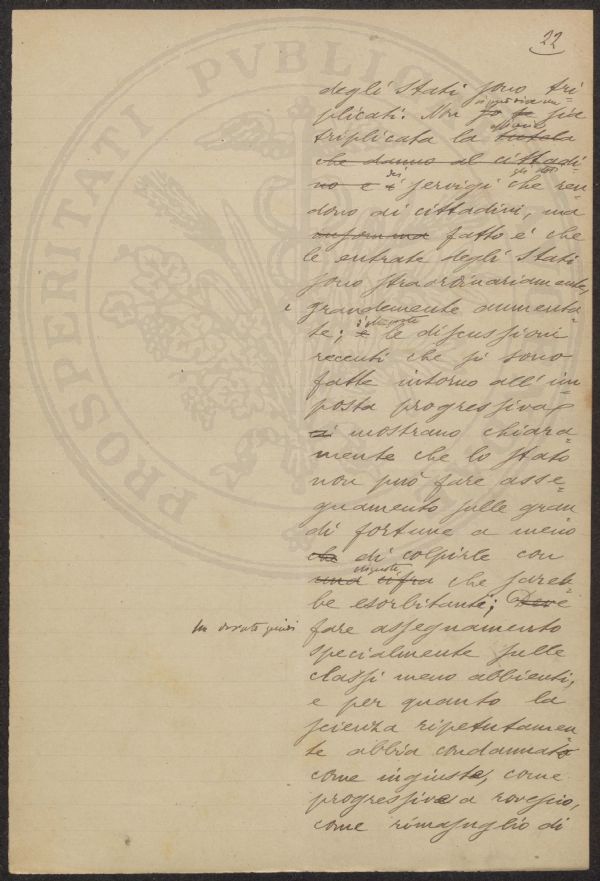 22
PROSPERITATI PVBLIC
degli Stati sono tri=
plicati. Non so se sia
triplicata la tutela
che danno al cittadi=
no e i servigi che ren
dono ai cittadini, ma
fatto è che
le entrate degli Stati
sono straordinariamente,
e grandemente aumenta
te; e le discussioni
recenti che si sono
fatte intorno all'im=
posta progressiva
ci mostrano chiara=
mente che lo Stato
non può fare asse=
gnamento sulle gran
di fortune a meno
che di colpirle con
una cifra che sareb=
be esorbitante; Deve
fare assegnamento
specialmente sulle
classi meno abbienti,
e per quanto la
scienza ripetutamen
te abbia condannato
come ingiusta, come
progressiva a rovescio,
come rimasuglio di